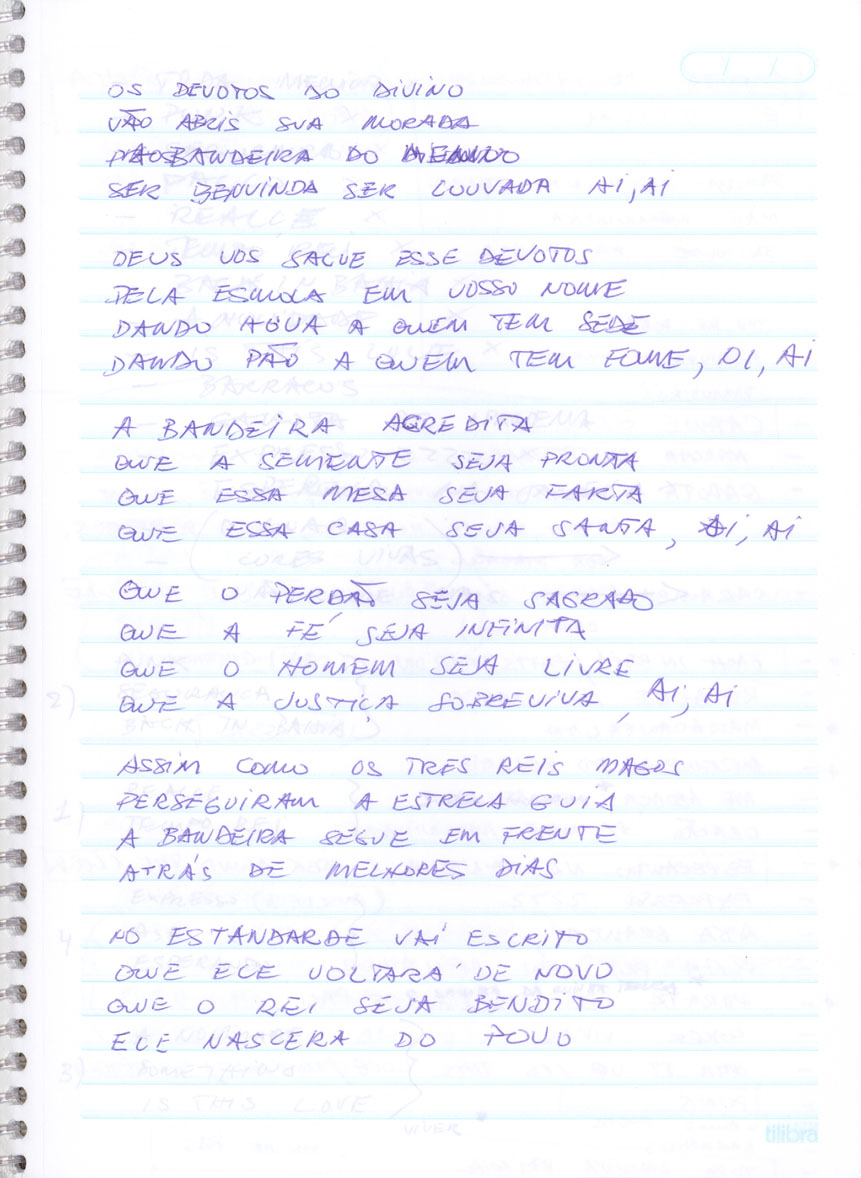 OS DEVOTOS DO DIVINO
VÃO ABRIS SUA MORADA
PRA BANDEIRA DO MENINO
SER BENVINDA SER LOUVADA AI, AI
DEUS VOS SALVE ESSE DEVOTOS
PELA ESMOLA EM VOSSO NOME
DANDO AGUA A QUEM TEM SEDE
DANDO PÃO A QUEM TEM FOME, OI, AI
A BANDEIRA ACREDITA
QUE A SEMENTE SEJA PRONTA
QUE ESSA MESA SEJA FARTA
QUE ESSA CASA SEJA SANTA, AI, AI
QUE O PERDÃO SEJA SAGRADO
QUE A FÉ SEJA INFINITA
QUE O HOMEM SEJA LIVRE
QUE A JUSTIÇA SOBREVIVA, AI, AI
ASSIM COMO OS TRES REIS MAGOS
PERSEGUIRAM A ESTRELA GUIA
A BANDEIRA SEGUE EM FRENTE
ATRÁS DE MELHORES DIAS
NO ESTANDARDE VAI ESCRITO
QUE ELE VOLTARÁ DE NOVO
QUE O REI SEJA BENDITO
ELE NASCERA DO POVO
tilibra